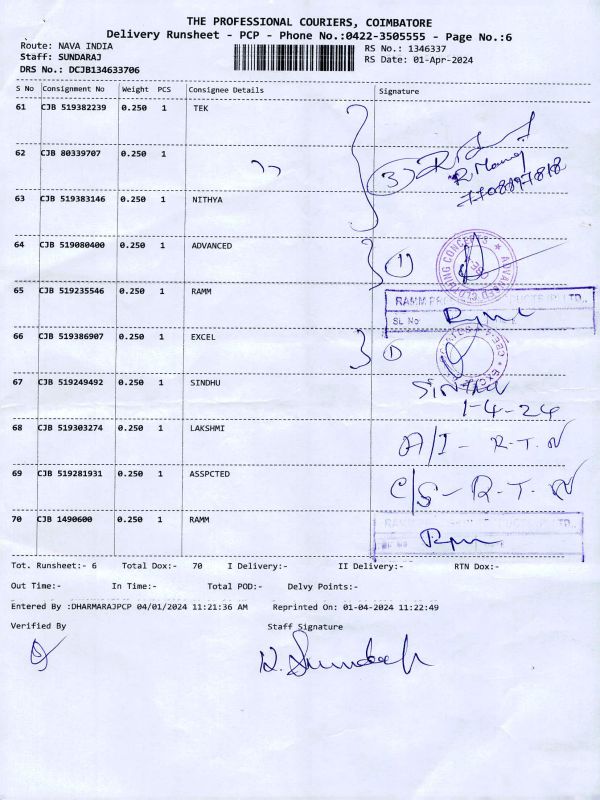 THE PROFESSIONAL COURIERS, COIMBATORE
Delivery Runsheet - PCP - Phone No.:0422-3505555 - Page No.:6
Route: NAVA INDIA
RS No.: 1346337
Staff: SUNDARAJ
RS Date: 01-Apr-2024
DRS No.: DCJB134633706
S No Consignment No Weight PCS Consignee Details Signature
61 CJB 519382239 0.250 1 TEK
62 CJB 80339707 0.250 1 ,, 3
R. Manoj
7708897818
63 CJB 519383146 0.250 1 NITHYA
64 CJB 519080400 0.250 1 ADVANCED 1 ADVANCED CLOTHING CONCEPTS
65 CJB 519235546 0.250 1 RAMM RAMM
SL No
66 CJB 519386907 0.250 1 EXCEL 1
67 CJB 519249492 0.250 1 SINDHU
1-4-24
68 CJB 519303274 0.250 1 LAKSHMI A/I - R.T.N
69 CJB 519281931 0.250 1 ASSPCTED C/S - R.T.N
70 CJB 1490600 0.250 1 RAMM
Tot. Runsheet:- 6 Total Dox:- 70 I Delivery:- II Delivery:- RTN Dox:-
Out Time:- In Time:- Total POD:- Delvy Points:-
Entered By :DHARMARAJPCP 04/01/2024 11:21:36 AM Reprinted On: 01-04-2024 11:22:49
Verified By Staff Signature